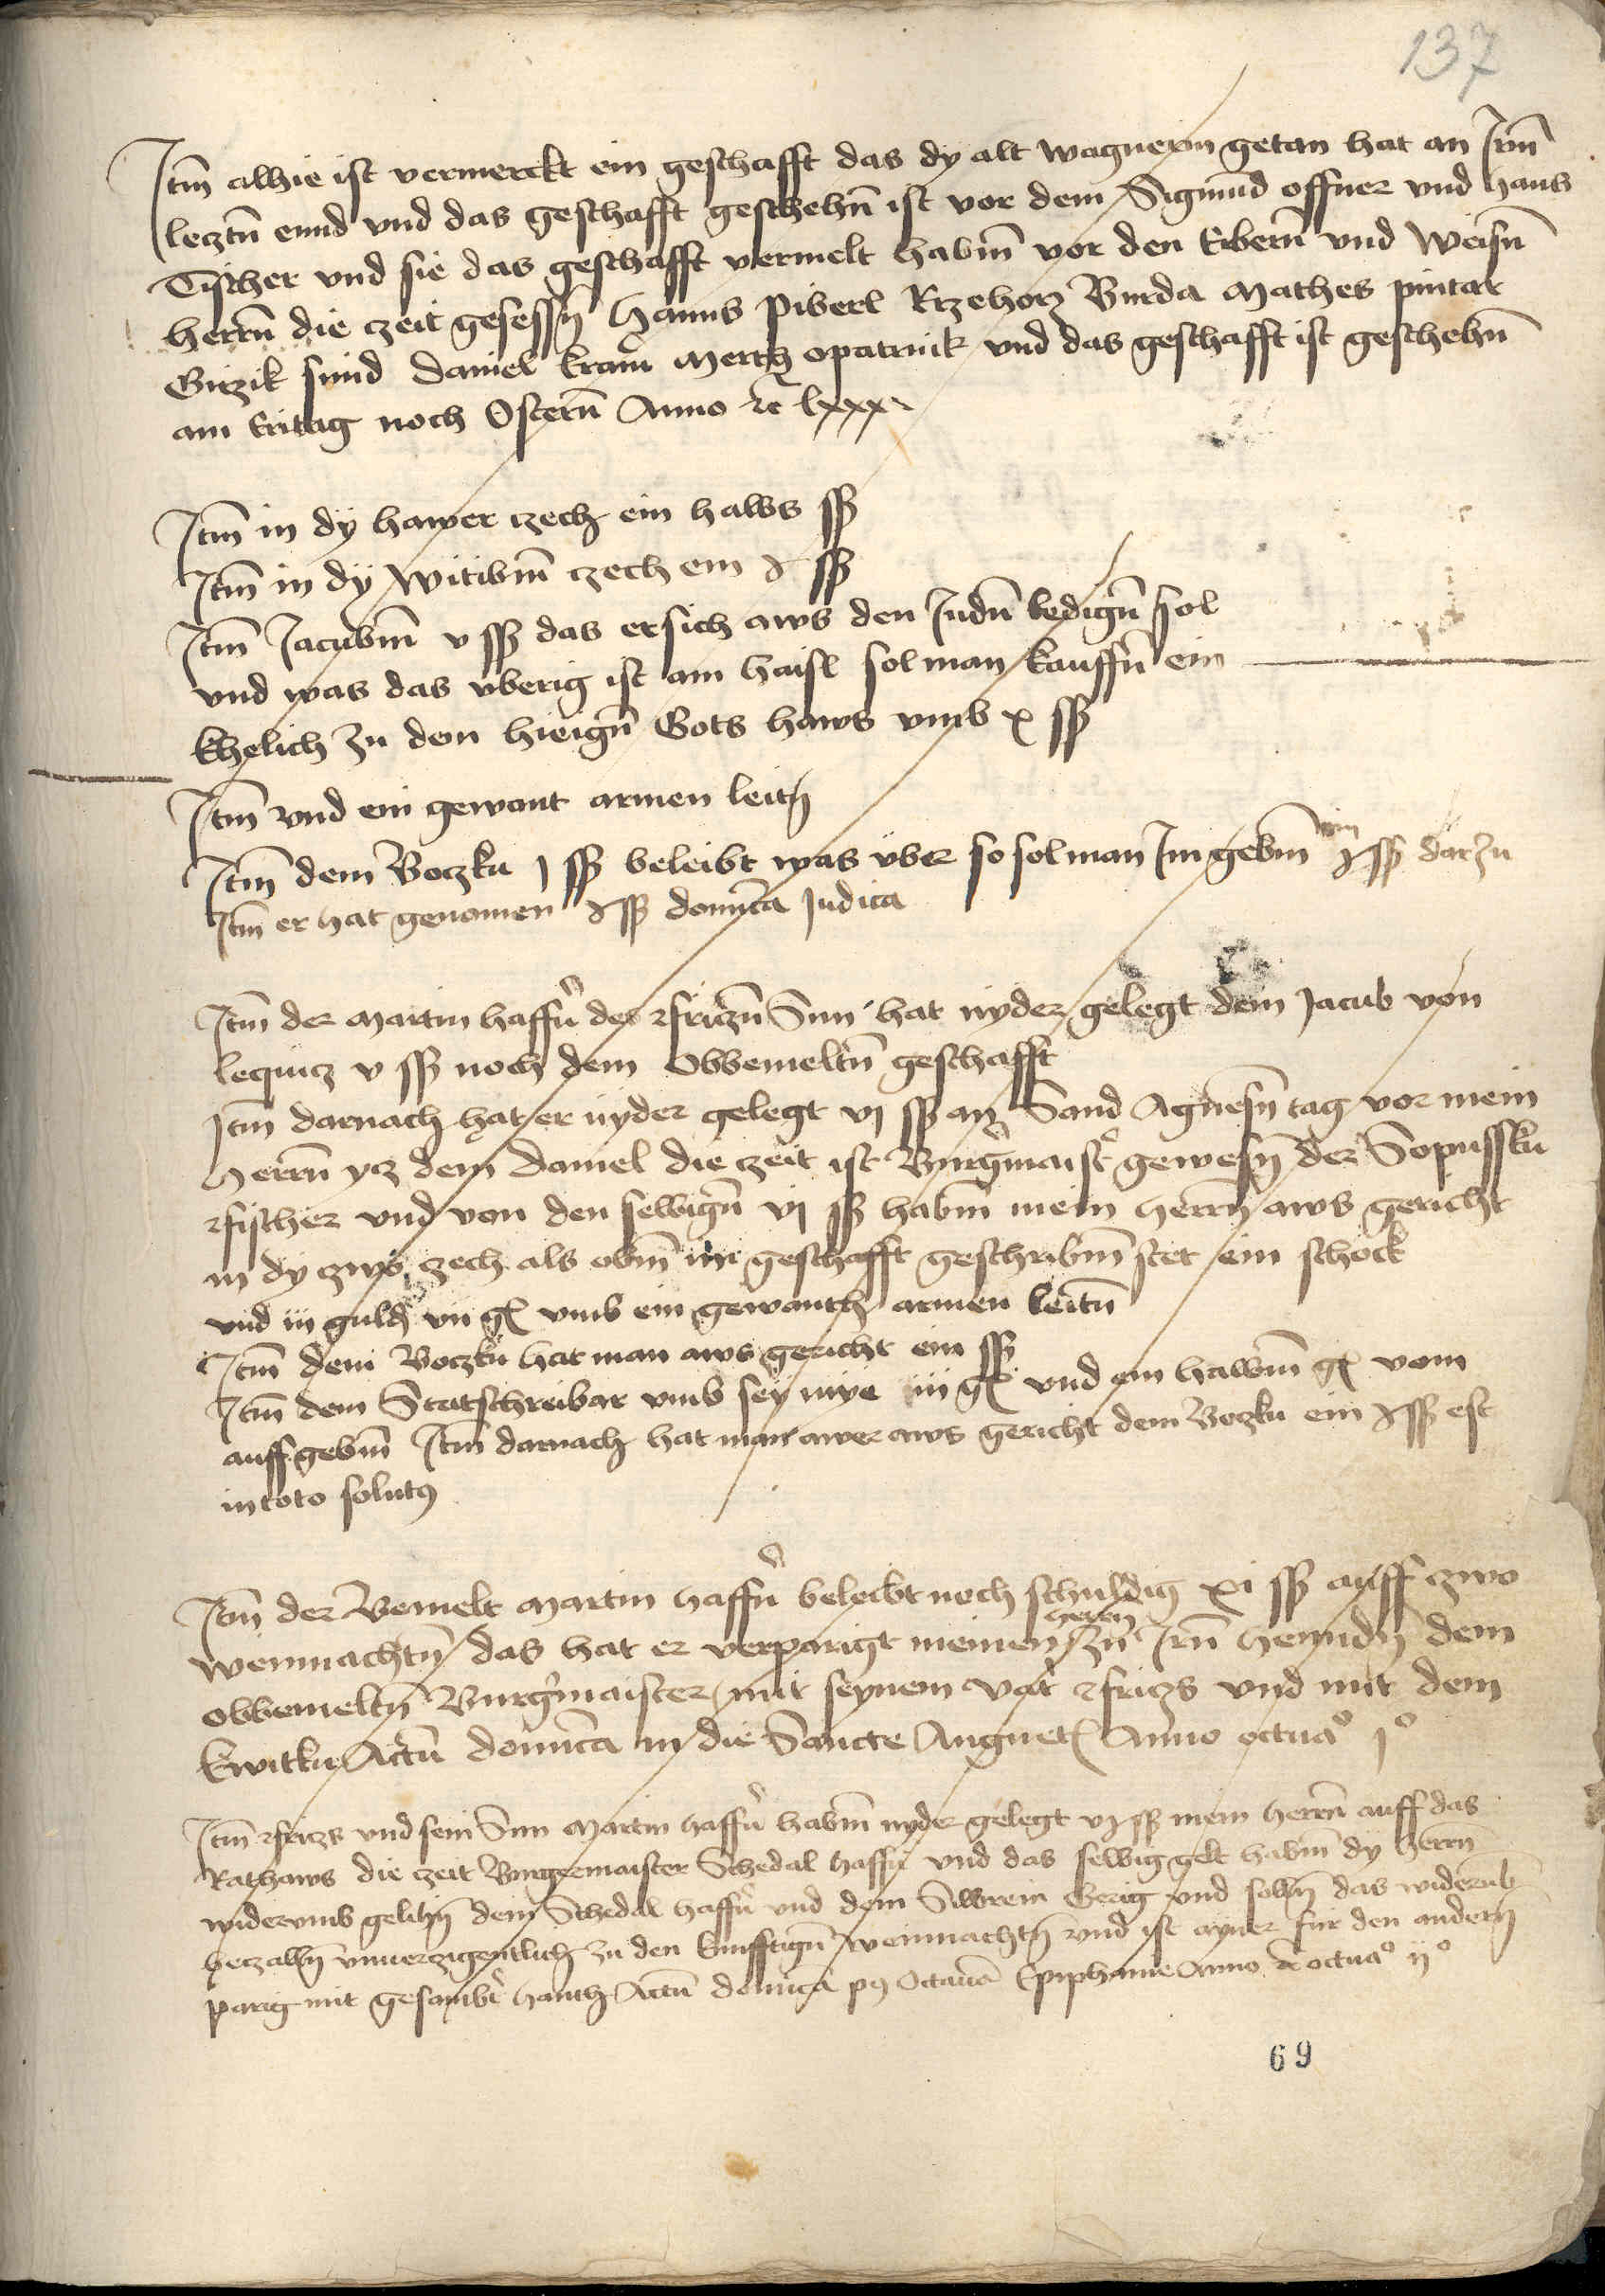 137
Itm̄ alhie ist vermerckt ein geschafft das dy alt wagnerin getan hat an Irm̄
lecztn̄ ennd vnd das geschafft geschehn̄ ist vor dem Sigmund offner vnd hans
Tischer vnd sie das geschafft vermelt habm̄ vor den Erbern̄ vnd Weisn̄
herrn̄ die czeit gesessn̄ Hanns Piberl Rzehorz Burda Mathes pintar
Girzik smid Daniel kram̄ Mertz opatrnik vnd das geschafft ist geschehn̄
am Eritag noch Ostern̄ Anno ꝛc̄ lxxx
Itm̄ in dy hawer czech ein halbs ss
Itm̄ in dy Witibm̄ czech ein ss
Itm̄ Jacubm̄ v ss das er sich aws den Judn̄ ledign̄ sol
vnd was das vberig ist am haisl sol man kauffn̄ ein
khelich zu dem hieign̄ Gots haws vmb x ss
Itm̄ vnd ein gewant armen leitn̄
Itm̄ dem Boczku j ss beleibt was vber so sol man Im gebm̄ ein ss darzu
Itm̄ er hat genomen ss domīca Judica
Itm̄ der Martin haffn̄ des frizn̄ Sun hat nyder gelegt dem Jacub von
lequicz v ss noch dem obbemeltn̄ geschafft
Itm̄ darnach hat er nyder gelegt vj ss an Sand Agnesn̄ tag vor mein
herrn̄ ycz dem Daniel die czeit ist Burgmaist̄ gewesn̄ der Sopussku
fischer vnd von den selbign̄ vj ss habm̄ mein herrn̄ aws gericht
in dy zwo zech als obm̄ im geschafft geschribm̄ stet ein schock
vnd iij guld vij gʳ vmb ein gewanth armen leitn̄
Itm̄ dem Boczku hat man aws gericht ein ss
Itm̄ dem Statschreibar vmb sey mye iij gʳ vnd ein hawm̄ gʳ vom
auff gebm̄ Itm̄ darnach hat man awer aws gericht dem Boczku ein ss est
in toto solutꝰ
Itm̄ der Bemelt Martin haffn̄ beleibt noch schuldig xi ss auff zwo
weinnachtn̄ das hat er verparigt meinen heren zu Irn̄ henndn̄ dem
obbemeltn̄ Burgmaister mit seynem vat̄ frizs vnd mit dem
kwitku Actū domīca in die Sancte Angnetʳ Anno octuaᵒ jᵒ
Itm̄ frizs vnd sein Sun Martin haffn̄ habm̄ nyder gelegt vj ss mein herrn̄ auff das
Rathaws die czeit Burgermaister Schedal haffn̄ vnd das selbig gelt habm̄ dy herrn̄
widervmb gelihn̄ dem Schedal haffn̄ vnd dem Slwrein Gerig vnd solln̄ das widerūb
beczaln̄ vnuerczigentlich zu den kunfftign̄ weinnachtn̄ vnd ist ayner fur den andern̄
parig mit gesambt̄ hanth Actū domīca pꝰ Octauā Epiphanie Anno ꝛc octuaᵒ ijᵒ
69